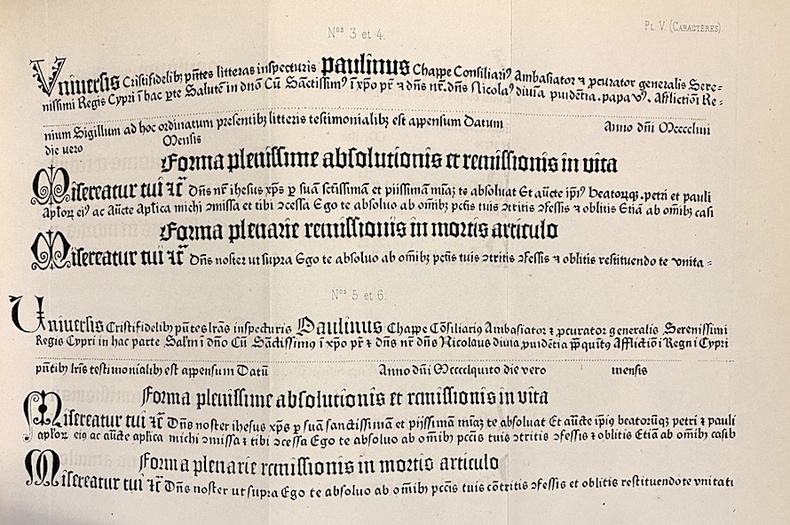 Nos 3 et 4.
Pl. V. (Caractères)
Vniuersis Cristifidelibꝫ pn̄tes litteras inspecturis paulinus Chappe Consiliariꝰ Ambasiator ⁊ ꝓcurator generalis Sere⸗
nissimi Regis Cypri ī hac ꝑte Salutē in dnō Cū Sāctissimꝰ ī xp̄o pr̄ ⁊ dn̄s nr̄. dn̄s Nicolaꝰ diuīa ꝓuidētia. papa vꝰ. Afflictiōi Re⸗
nium Sigillum ad hoc ordinatum presentibꝫ litteris testimonialibꝫ est appensum Datum Anno dn̄i Mccccliiii
die vero Mensis
Forma plenissime absolutionis et remissionis in vita
Misereatur tui ⁊c̄ Dn̄s nr̄ ihesus xp̄s ꝑ suā sctīssimā et piissimā mīaꝫ te absoluat Et auc̄te ip̄iꝰ beatorūqꝫ petri et pauli
Aplōꝝ eiꝰ ac auc̄te Aplīca michi ꝯmissa et tibi ꝯcessa Ego te absoluo ab om̄ibꝫ pctīs tuis ꝯtritis ꝯfessis ⁊ oblitis Etiā ab om̄ibꝫ casi
Forma plenarie remissionis in mortis articulo
Misereatur tui ⁊c̄ Dn̄s noster ut supra Ego te absoluo ab om̄ibꝫ pctīs tuis ꝯtritis ꝯfessis ⁊ oblitis restituendo te vnita⸗
Nos 5 et 6.
Vniuersis Cristifidelibꝫ pn̄tes lr̄as inspecturis Paulinus Chappe Cōsiliariꝰ Ambasiator ⁊ ꝓcurator generalis Serenissimi
Regis Cypri in hac parte Salt̄m ī dn̄o Cū Sāctissimꝰ ī xp̄o pr̄ ⁊ dn̄s nr̄ dn̄s Nicolaus diuīa ꝓuidētia pp̄ quītꝰ Afflictiōi Regni Cypri
pn̄tibꝫ lr̄is testimonialibꝫ est appensum Datū Anno dn̄i Mccccl quīto die vero mensis
Forma plenissime absolutionis et remissionis in vita
Misereatur tui ⁊c̄ Dn̄s noster ihesus xp̄s ꝑ suā sanctissimā et piissimā mīaꝫ te absoluat Et auc̄te ip̄iꝰ beatorūqꝫ petri ⁊ pauli
aplōꝝ eiꝰ ac auc̄te aplīca michi ꝯmissa ⁊ tibi ꝯcessa Ego te absoluo ab om̄ibꝫ pctīs tuis ꝯtritis ꝯfessis ⁊ oblitis Etiā ab om̄ibꝫ casibꝫ
Forma plenarie remissionis in mortis articulo
Misereatur tui ⁊c̄ Dn̄s noster ut supra Ego te absoluo ab om̄ibꝫ pctīs tuis cōtritis ꝯfessis et oblitis restituendo te vnitati